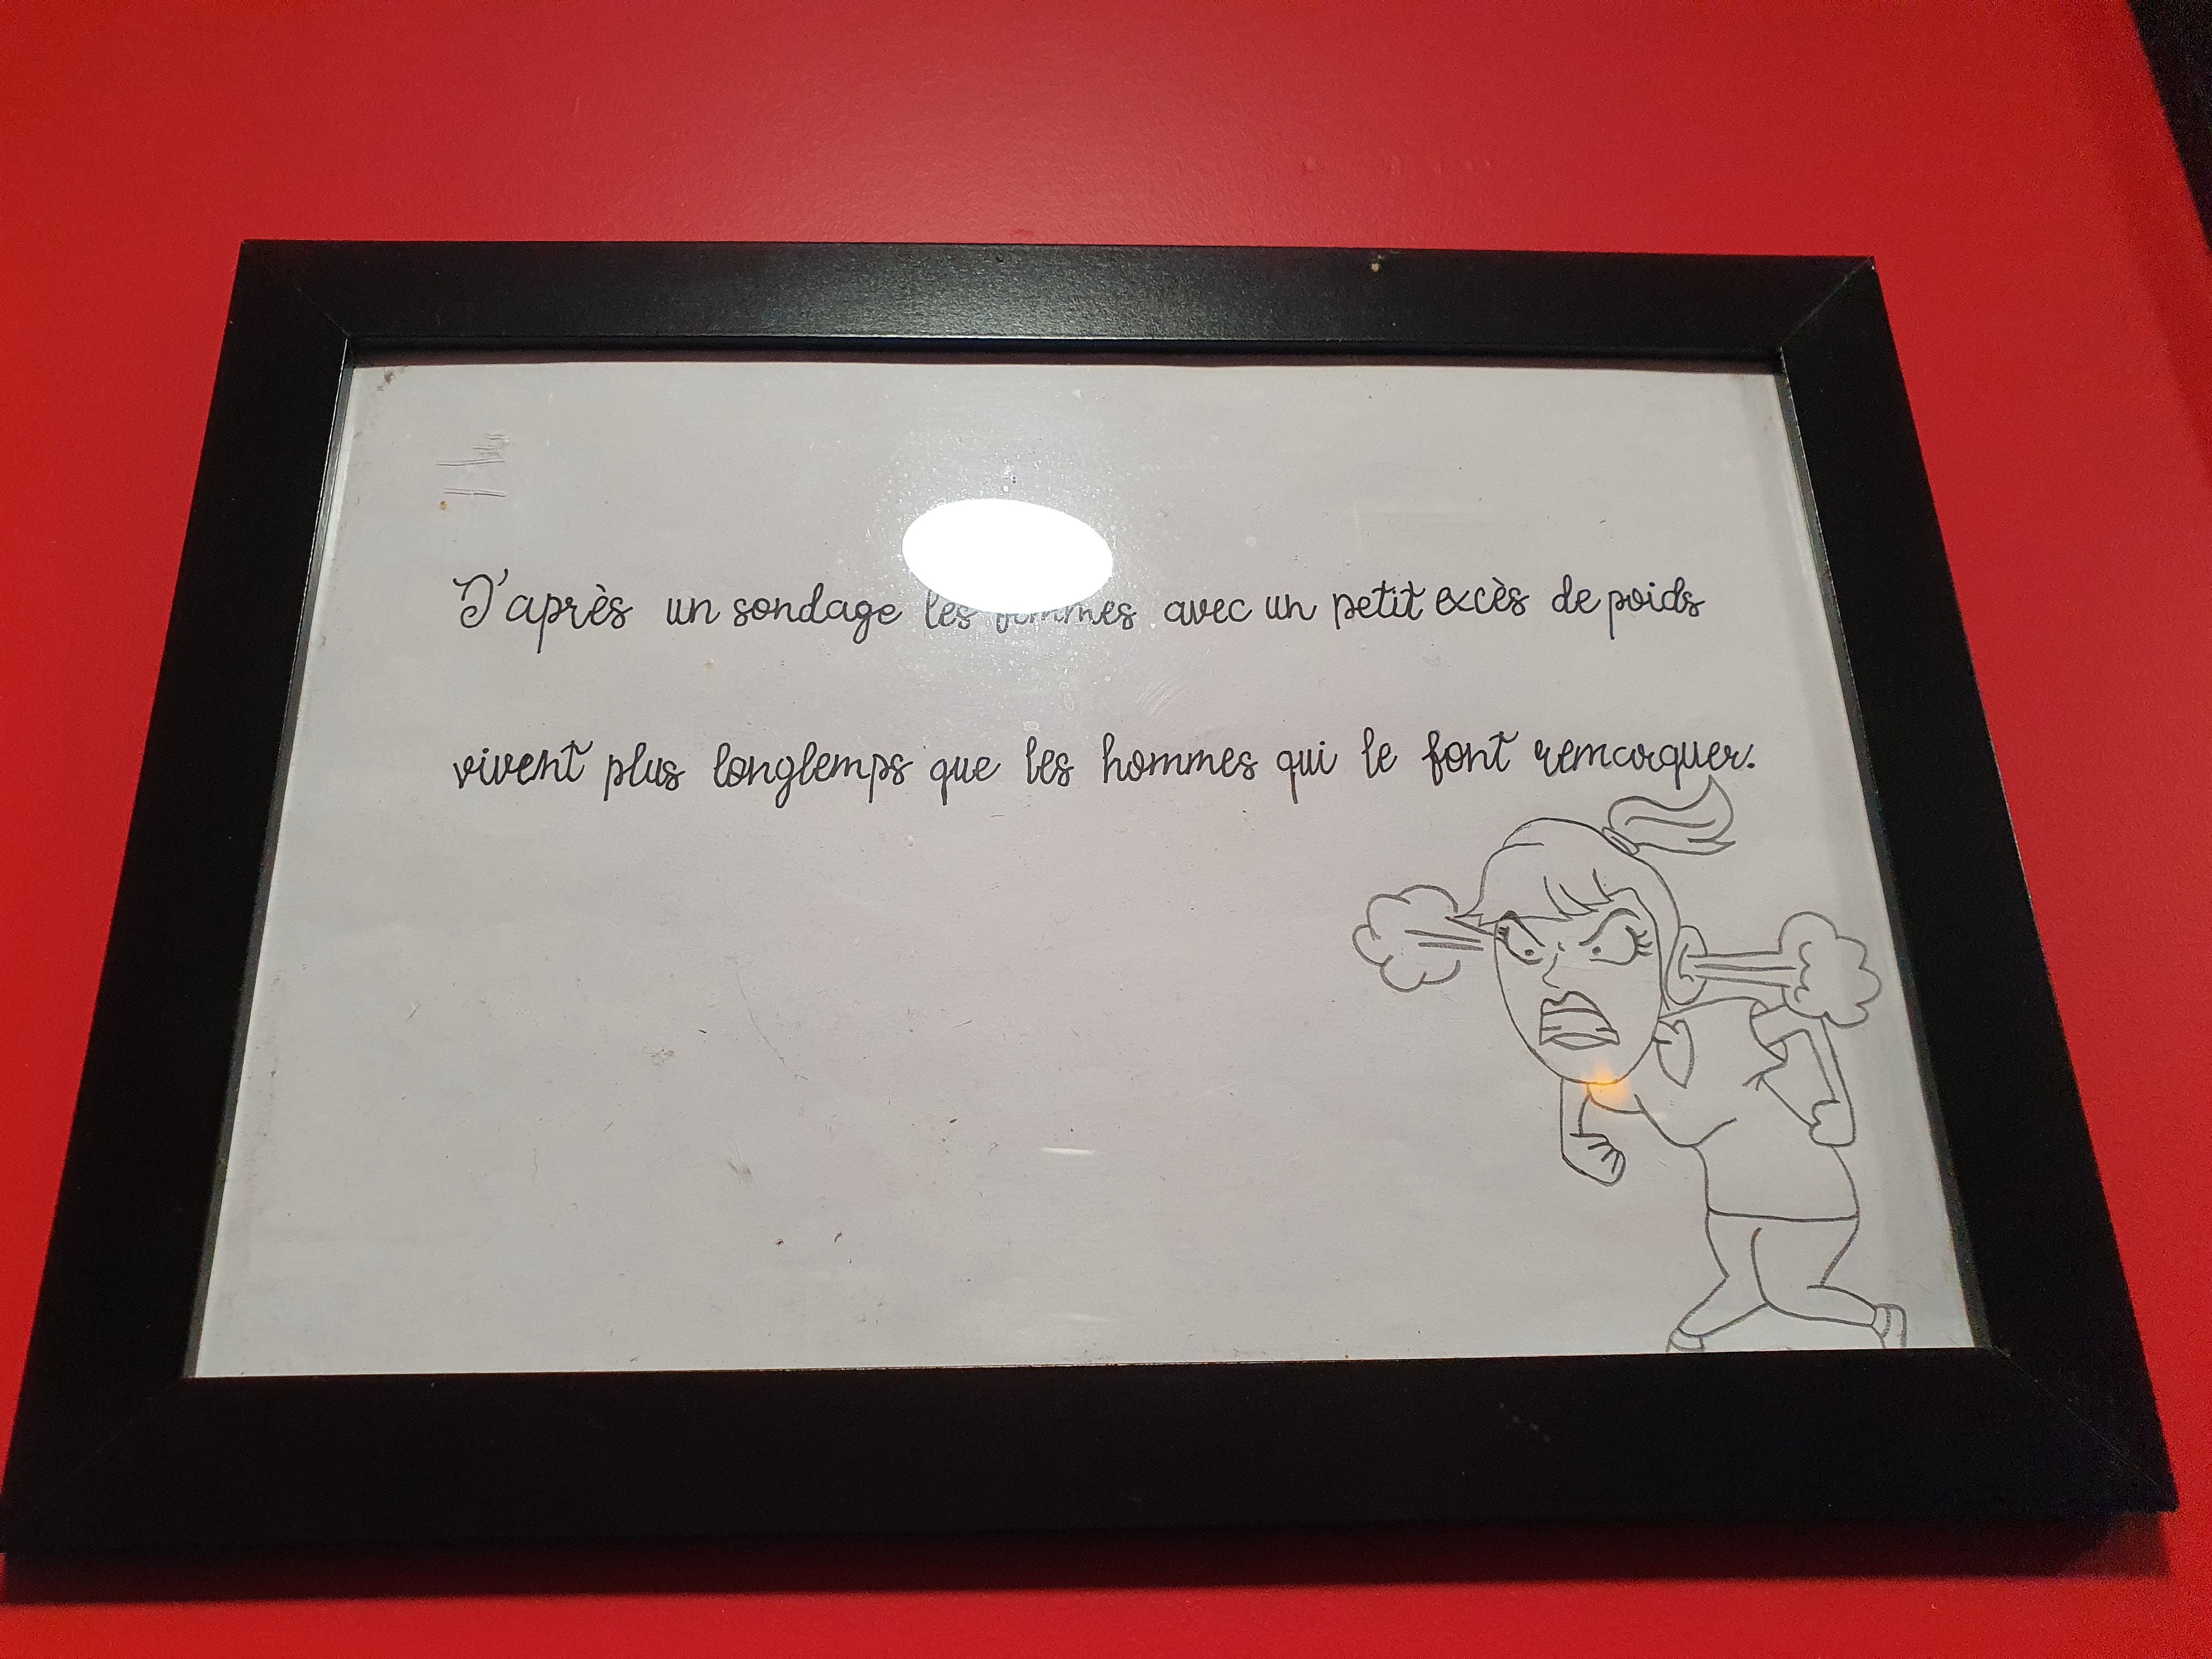 D'après un sondage les femmes avec un petit excès de poids
vivent plus longtemps que les hommes qui le font remarquer.